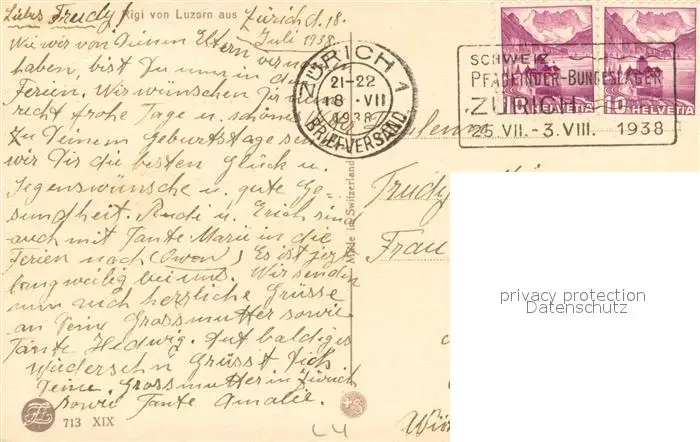 Liebes Trudy! Rigi von Luzern aus Zürich d. 18.
Juli 1938
Wie wir von Deinen Eltern
haben, bist Du nun in den
Ferien. Wir wünschen Dir
recht frohe Tage u. schönes
Zu Deinem Geburtstage
wir Dir die besten Glück u.
Segenswünsche u. gute Ge-
sundheit. Rudi u. Erich sind
auch mit Tante Marie in die
Ferien nach (Owen) Es ist jetzt
langweilig bei uns. Wir senden
nun auch herzliche Grüsse
an Deine Grossmutter sowie
Tante Hedwig. Auf baldiges
Wiedersehn Grüsst Dich
Deine Grossmutter in Zürich
sowie Tante Amalie.
713 XIX
Made in Switzerland
ZÜRICH 1
21-22
18. VII
1938
BRIEFVERSAND
SCHWEIZ.
PFADFINDER-BUNDESLAGER
ZÜRICH
25. VII. - 3. VIII. 1938
10 HELVETIA
Trudy
Frau
privacy protection
Datenschutz